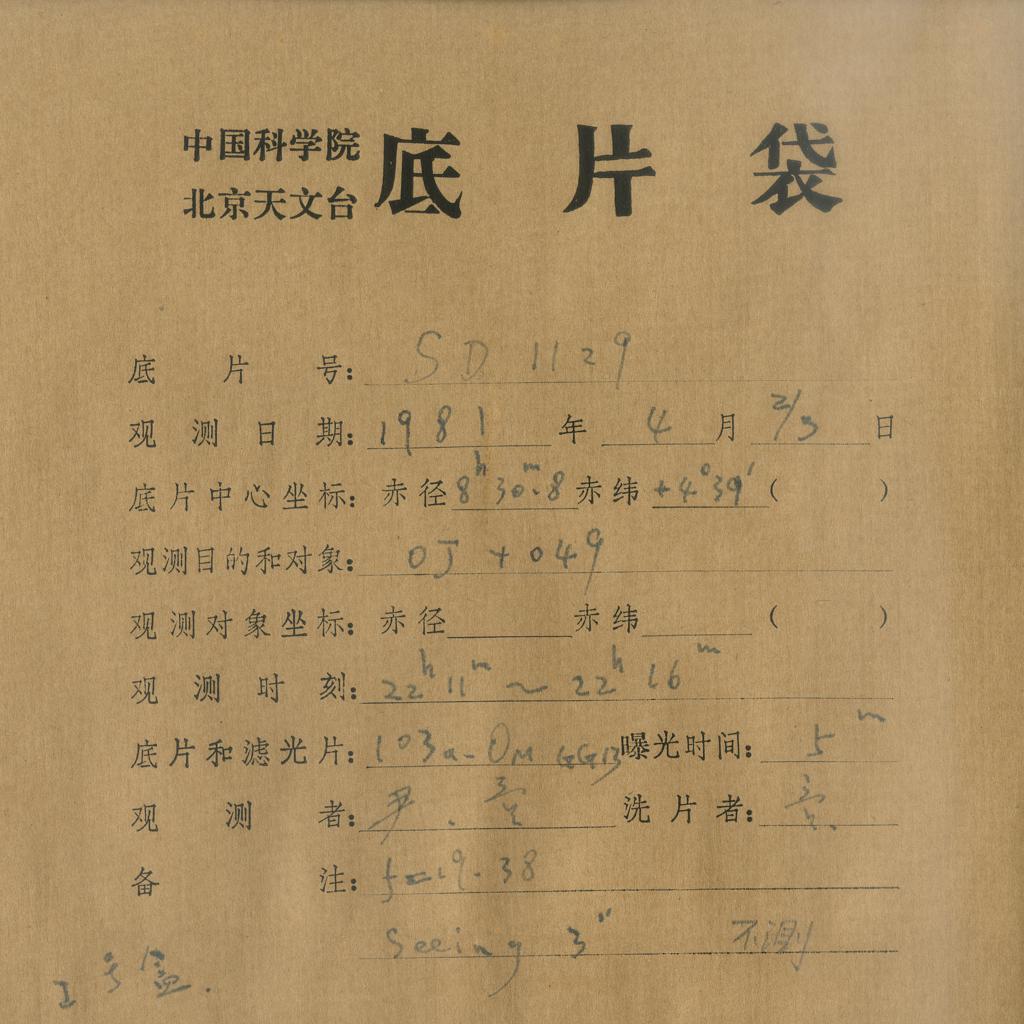 中国科学院
北京天文台
底片袋
底片号：SD 1129
观测日期：1981年 4月 2/3日
底片中心坐标：赤径 8h30m.8 赤纬 +4°39′（ ）
观测目的和对象：OJ + 049
观测对象坐标：赤径 赤纬 （ ）
观测时刻：22h11m ~ 22h16m
底片和滤光片：103a-O GG13 曝光时间：5m
观测者：尹.
洗片者：
备注：f=19.38
Seeing 3″ 不测
号盒.